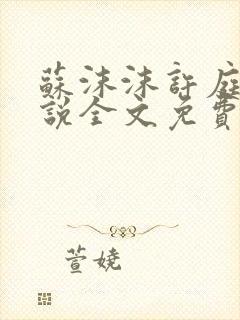 蘇沫沫許庭
說全文免費
萱嬈